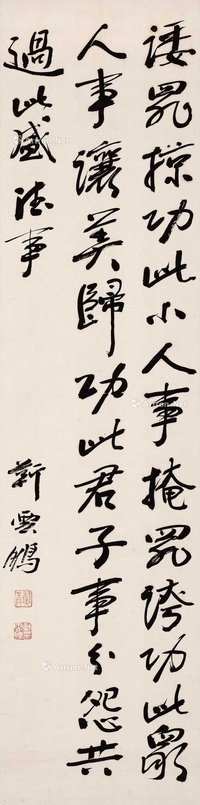 诿罪掠功此小人事掩罪誇功此衆
人事讓美歸功此君子事分怨共
過此盛德事
靳雲鵬